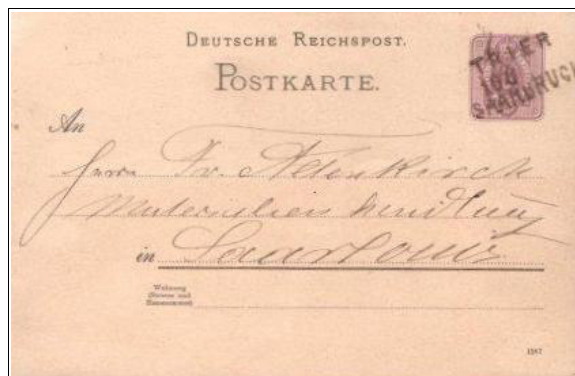 DEUTSCHE REICHSPOST.
POSTKARTE.
TRIER
SAARBRUCK
An
Herrn Fr.
Materialien Handlung
in Saarlouis
Wohnung
(Strasse und
Hausnummer)